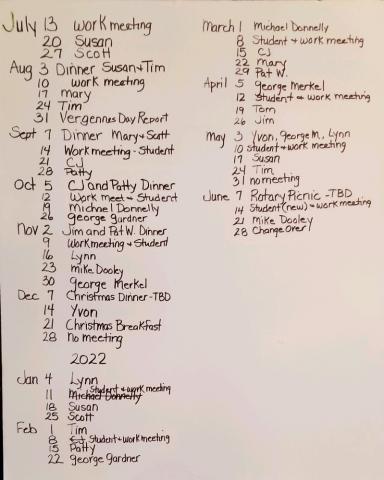 July 13 work meeting
20 Susan
27 Scott
Aug 3 Dinner Susan + Tim
10 work meeting
17 mary
24 Tim
31 Vergennes Day Report
Sept 7 Dinner Mary + Scott
14 Work meeting - Student
21 CJ
28 Patty
Oct 5 CJ and Patty Dinner
12 Work meet + Student
19 Michael Donnelly
26 george gardner
Nov 2 Jim and Pat W. Dinner
9 Work meeting + Student
16 Lynn
23 mike Dooley
30 george Merkel
Dec 7 Christmas Dinner - TBD
14 Yvon
21 Christmas Breakfast
28 no meeting
2022
Jan 4 Lynn
11 Michael Donnelly Student + work meeting
18 Susan
25 Scott
Feb 1 Tim
8 CJ Student + work meeting
15 Patty
22 george gardner
March 1 Michael Donnelly
8 Student + work meeting
15 CJ
22 mary
29 Pat W.
April 5 george Merkel
12 Student + work meeting
19 Tom
26 Jim
May 3 Yvon, George M., Lynn
10 Student + work meeting
17 Susan
24 Tim
31 no meeting
June 7 Rotary Picnic - TBD
14 Student (new) + work meeting
21 Mike Dooley
28 Change Over!